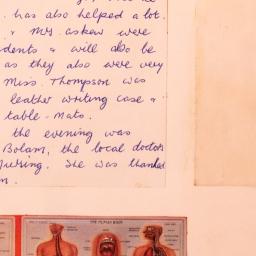 has also helped a lot.
Mrs. Askew were
dents & will also be
as they also were very
Miss. Thompson was
leather writing case &
table-mats.
the evening was
Bolam, the local doctor
She was thanked
THE HUMAN BODY